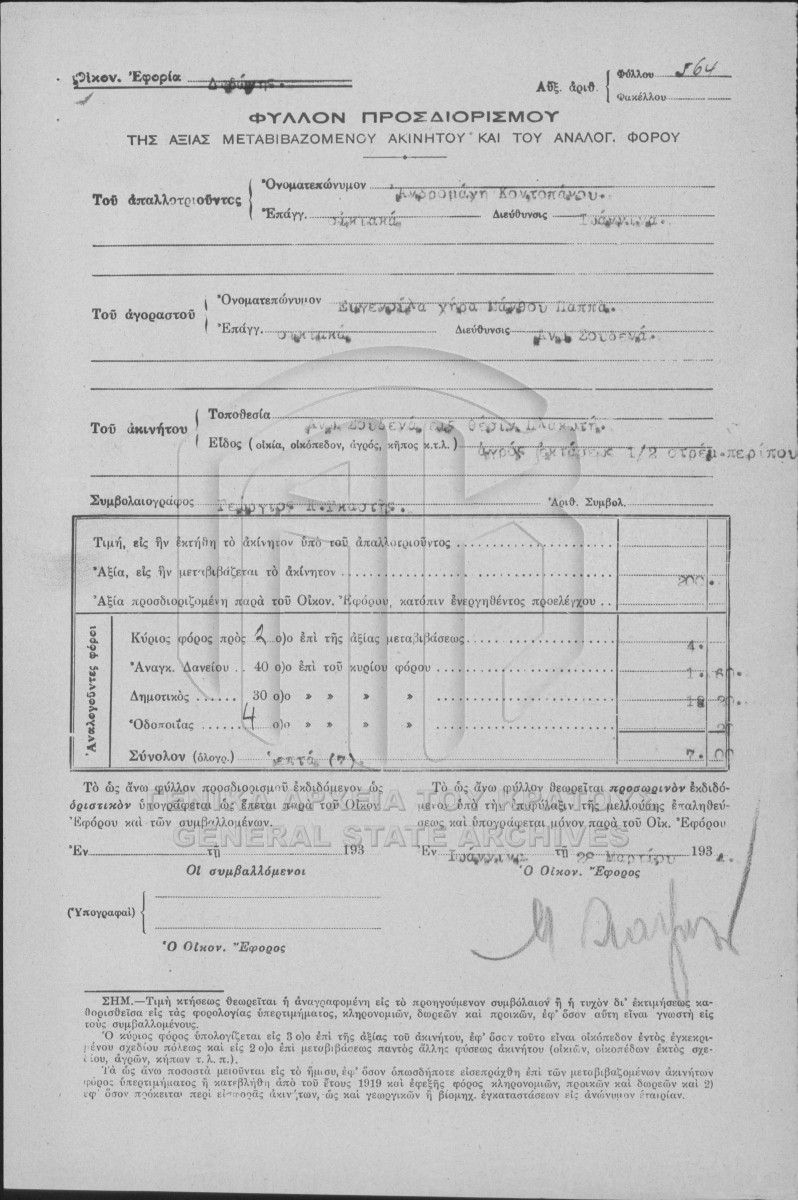 Οἰκον. Ἐφορία
Αὔξ. ἀριθ. Φύλλου 564
Φακέλλου
ΦΥΛΛΟΝ ΠΡΟΣΔΙΟΡΙΣΜΟΥ
ΤΗΣ ΑΞΙΑΣ ΜΕΤΑΒΙΒΑΖΟΜΕΝΟΥ ΑΚΙΝΗΤΟΥ ΚΑΙ ΤΟΥ ΑΝΑΛΟΓ. ΦΟΡΟΥ
Τοῦ ἀπαλλοτριοῦντος
Ὀνοματεπώνυμον Ἀνδρομάχη Κοντοπάνου.
Ἐπάγγ. οἰκιακά Διεύθυνσις Ἰωάννινα.
Τοῦ ἀγοραστοῦ
Ὀνοματεπώνυμον χήρα Μάνθου Παππᾶ.
Ἐπάγγ. οἰκιακά Διεύθυνσις Ἄνω Σουδενά.
Τοῦ ἀκινήτου
Τοποθεσία Ἄνω Σουδενά εἰς θέσιν
Εἶδος (οἰκία, οἰκόπεδον, ἀγρός, κῆπος κ.τ.λ.) ἀγρός ἐκτάσεως 1/2 στρέμ. περίπου
Συμβολαιογράφος Γεώργιος Κ. Ἀριθ. Συμβολ.
Τιμή, εἰς ἣν ἐκτήθη τὸ ἀκίνητον ὑπὸ τοῦ ἀπαλλοτριοῦντος
Ἀξία, εἰς ἣν μεταβιβάζεται τὸ ἀκίνητον 200.
Ἀξία προσδιοριζομένη παρὰ τοῦ Οἰκον. Ἐφόρου, κατόπιν ἐνεργηθέντος προελέγχου
Ἀναλογοῦντες φόροι
Κύριος φόρος πρὸς 2 ο)ο ἐπὶ τῆς ἀξίας μεταβιβάσεως 4.
Ἀναγκ. Δανείου 40 ο)ο ἐπὶ τοῦ κυρίου φόρου 1.60.
Δημοτικὸς 30 ο)ο » » »
Ὁδοποιΐας 4 ο)ο » » »
Σύνολον (ὁλογρ.) ἑπτά (7) 7.00
Τὸ ὡς ἄνω φύλλον προσδιορισμοῦ ἐκδιδόμενον ὡς
ὁριστικὸν ὑπογράφεται ὡς ἕπεται παρὰ τοῦ Οἰκον.
Ἐφόρου καὶ τῶν συμβαλλομένων.
Ἐν τῇ 193
Οἱ συμβαλλόμενοι
(Ὑπογραφαὶ)
Ὁ Οἰκον. Ἔφορος
Τὸ ὡς ἄνω φύλλον θεωρεῖται προσωρινὸν ἐκδιδό-
μενον ὑπὸ τὴν ἐπιφύλαξιν τῆς μελλούσης ἐπαληθεύ-
σεως καὶ ὑπογράφεται μόνον παρὰ τοῦ Οἰκ. Ἐφόρου
Ἐν Ἰωάννινα τῇ 29 Μαρτίου 193
Ὁ Οἰκον. Ἔφορος
ΓΕΝΙΚΑ ΑΡΧΕΙΑ ΤΟΥ ΚΡΑΤΟΥΣ
GENERAL STATE ARCHIVES
ΣΗΜ.—Τιμὴ κτήσεως θεωρεῖται ἡ ἀναγραφομένη εἰς τὸ προηγούμενον συμβόλαιον ἢ ἡ τυχὸν δι' ἐκτιμήσεως κα-
θορισθεῖσα εἰς τὰς φορολογίας ὑπερτιμήματος, κληρονομιῶν, δωρεῶν καὶ προικῶν, ἐφ' ὅσον αὕτη εἶναι γνωστὴ εἰς
τοὺς συμβαλλομένους.
Ὁ κύριος φόρος ὑπολογίζεται εἰς 3 ο)ο ἐπὶ τῆς ἀξίας τοῦ ἀκινήτου, ἐφ' ὅσον τοῦτο εἶναι οἰκόπεδον ἐντὸς ἐγκεκρι-
μένου σχεδίου πόλεως καὶ εἰς 2 ο)ο ἐπὶ μεταβιβάσεως παντὸς ἄλλης φύσεως ἀκινήτου (οἰκιῶν, οἰκοπέδων ἐκτὸς σχε-
δίου, ἀγρῶν, κήπων τ. λ. π.).
Τὰ ὡς ἄνω ποσοστὰ μειοῦνται εἰς τὸ ἥμισυ, ἐφ' ὅσον ὁπωσδήποτε εἰσεπράχθη ἐπὶ τῶν μεταβιβαζομένων ἀκινήτων
φόρος ὑπερτιμήματος ἢ κατεβλήθη ἀπὸ τοῦ ἔτους 1919 καὶ ἐφεξῆς φόρος κληρονομιῶν, προικῶν καὶ δωρεῶν καὶ 2)
ἐφ' ὅσον πρόκειται περὶ εἰσφορᾶς ἀκινήτων, ὡς καὶ γεωργικῶν ἢ βιομηχ. ἐγκαταστάσεων εἰς ἀνώνυμον ἑταιρίαν.